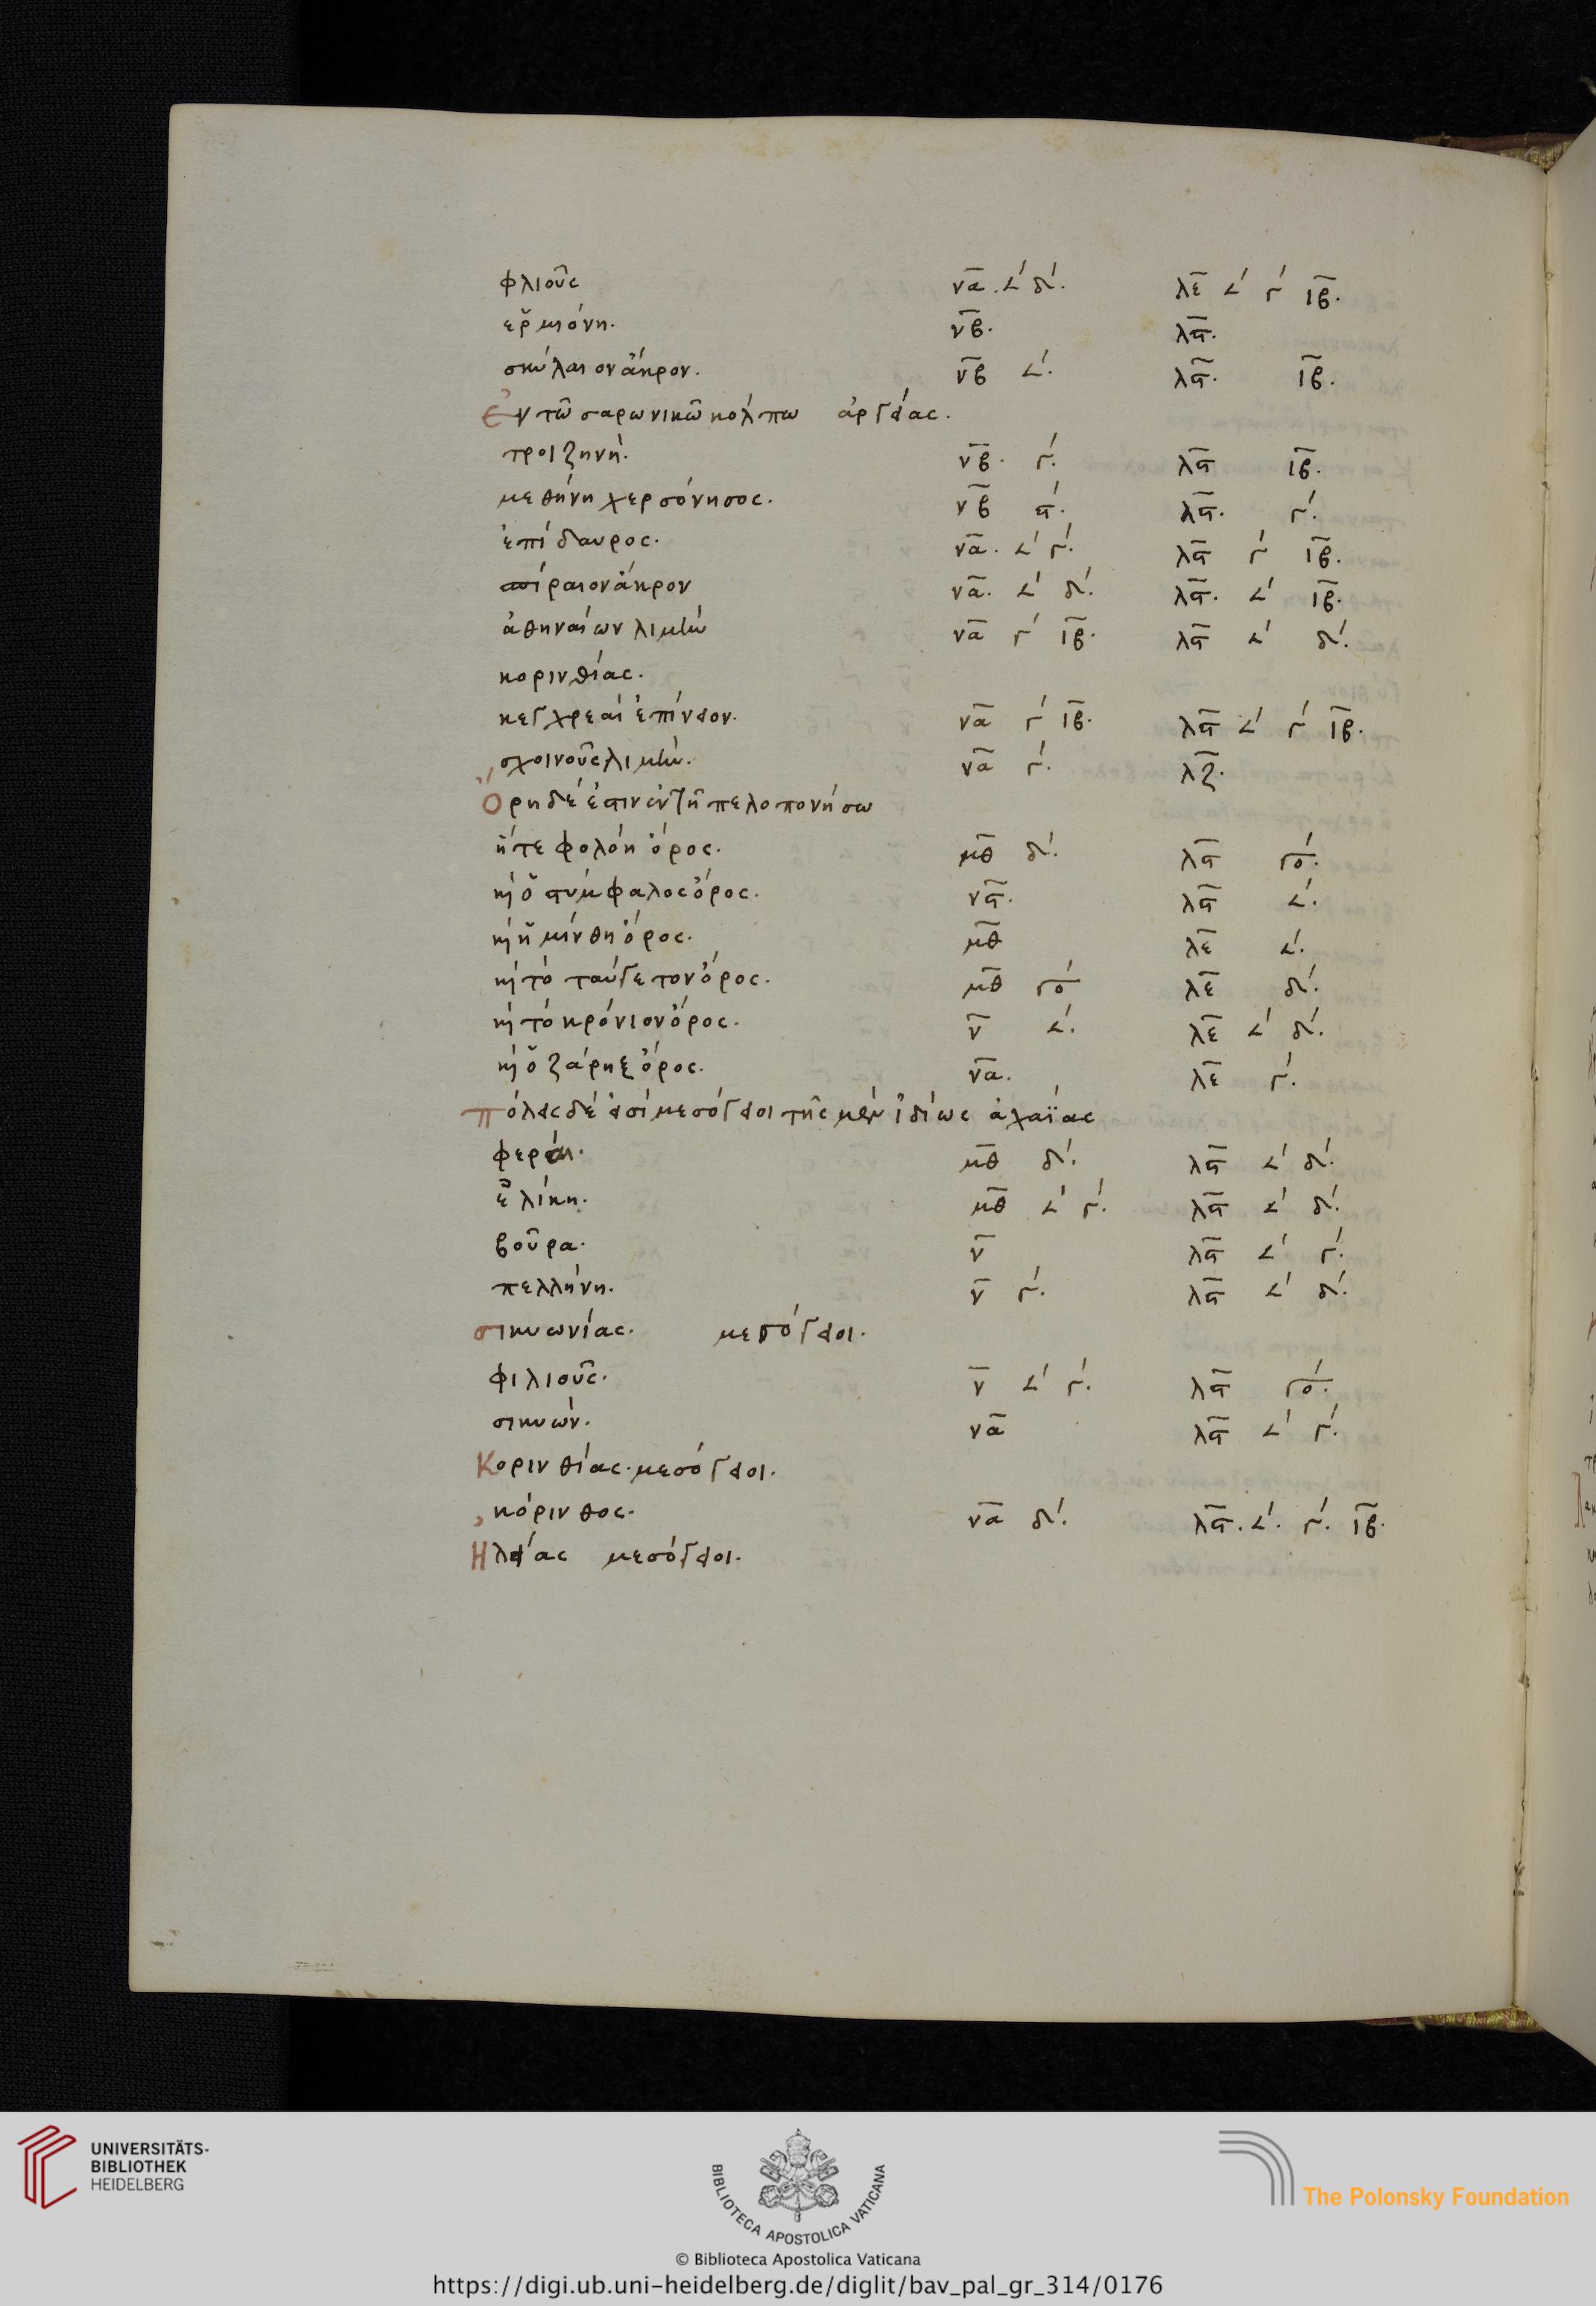 φλιοῦς να ∠ʹ δʹ. λε ∠ʹ γʹ ιβ.
ἑρμιόνη. νβ. λϛ.
σκύλαιον ἄκρον. νβ ∠ʹ. λϛ. ιβ.
Ἐν τῶ σαρωνικῶ κόλπω ἀργείας.
τροιζηνή. νβ. γʹ. λϛ ιβ.
μεθήνη χερσόνησος. νβ ϛʹ. λϛ. γʹ.
ἐπίδαυρος. να. ∠ʹ γʹ. λϛ γʹ ιβ.
σπίραιον ἄκρον να. ∠ʹ δʹ. λϛ. ∠ʹ ιβ.
ἀθηναίων λιμὴν να γʹ ιβ. λϛ ∠ʹ δʹ.
κορινθίας.
κεγχρεαὶ ἐπίνειον. να γʹ ιβ. λϛ ∠ʹ γʹ ιβ.
σχοινοῦς λιμήν. να γʹ. λζ.
Ὄρη δέ ἐστιν ἐν τῆ πελοπονήσω
ἥτε φολόη ὄρος. μθ δʹ. λϛ γο.
κὶ ὁ στύμφαλος ὄρος. νϛ. λϛ ∠ʹ.
κὶ ἡ μίνθη ὄρος. μθ λε ∠ʹ.
κὶ τὸ ταύγετον ὄρος. μθ γο λε δʹ.
κὶ τὸ κρόνιον ὄρος. ν ∠ʹ. λε ∠ʹ δʹ.
κὶ ὁ ζάρηξ ὄρος. να. λε γʹ.
πόλεις δέ εἰσι μεσόγειοι τῆς μὲν ἰδίως ἀχαΐας
φεραί. μθ δʹ. λϛ ∠ʹ δʹ.
ἑλίκη. μθ ∠ʹ γʹ. λϛ ∠ʹ δʹ.
βοῦρα. ν λϛ ∠ʹ γʹ.
πελλήνη. ν γʹ. λϛ ∠ʹ δʹ.
σικυωνίας. μεσόγειοι.
φιλιοῦς. ν ∠ʹ γʹ. λϛ γο.
σικυών. να λϛ ∠ʹ γʹ.
Κορινθίας. μεσόγειοι.
κόρινθος. να δʹ. λϛ. ∠ʹ. γʹ. ιβ.
Ἠλείας μεσόγειοι.
UNIVERSITÄTS-
BIBLIOTHEK
HEIDELBERG
BIBLIOTECA APOSTOLICA VATICANA
The Polonsky Foundation
© Biblioteca Apostolica Vaticana
https://digi.ub.uni-heidelberg.de/diglit/bav_pal_gr_314/0176